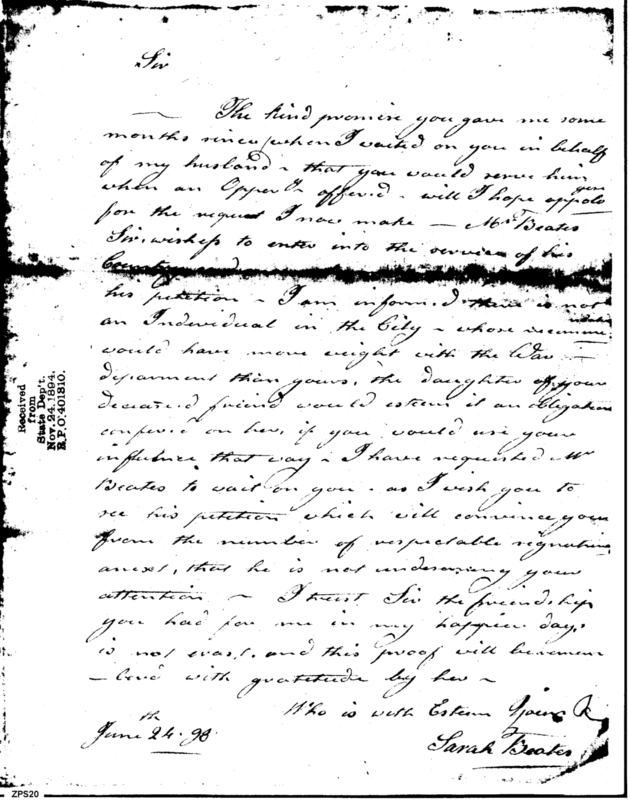 Sir
The kind promise you gave me some
months since, when I waited on you in behalf
of my husband - that you would serve him
when an Opper ty offered - will I hope
for the request I now make - Mr Beates
Sir, wishes to enter into the service of his
Country and
his petition - I am informed there is not
an Individual in the City - whose
would have more weight with the War -
deparment than yours, the daughter of your
deceased friend would esteem it an obligation
confered on her, if you would use your
influence that way - I have requested Mr
Beates to wait on you - as I wish you to
see his petition which will convince you
from the number of respectable signatures
anext, that he is not undeserving your
attention - I trust Sir the friendship
you had for me in my happier days
is not erast, and this proof will be remem
- berd with gratitude by her -
Who is with Esteem Yours
June 24th 98.
Sarah Beates
Received
from
State Dep't.
Nov. 24. 1894.
R.P.O. 401810.
ZPS20